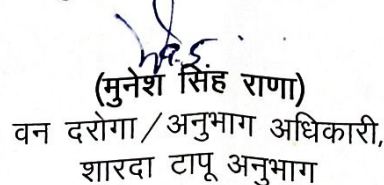 (मुनेश सिंह राणा)
वन दरोगा/अनुभाग अधिकारी,
शारदा टापू अनुभाग